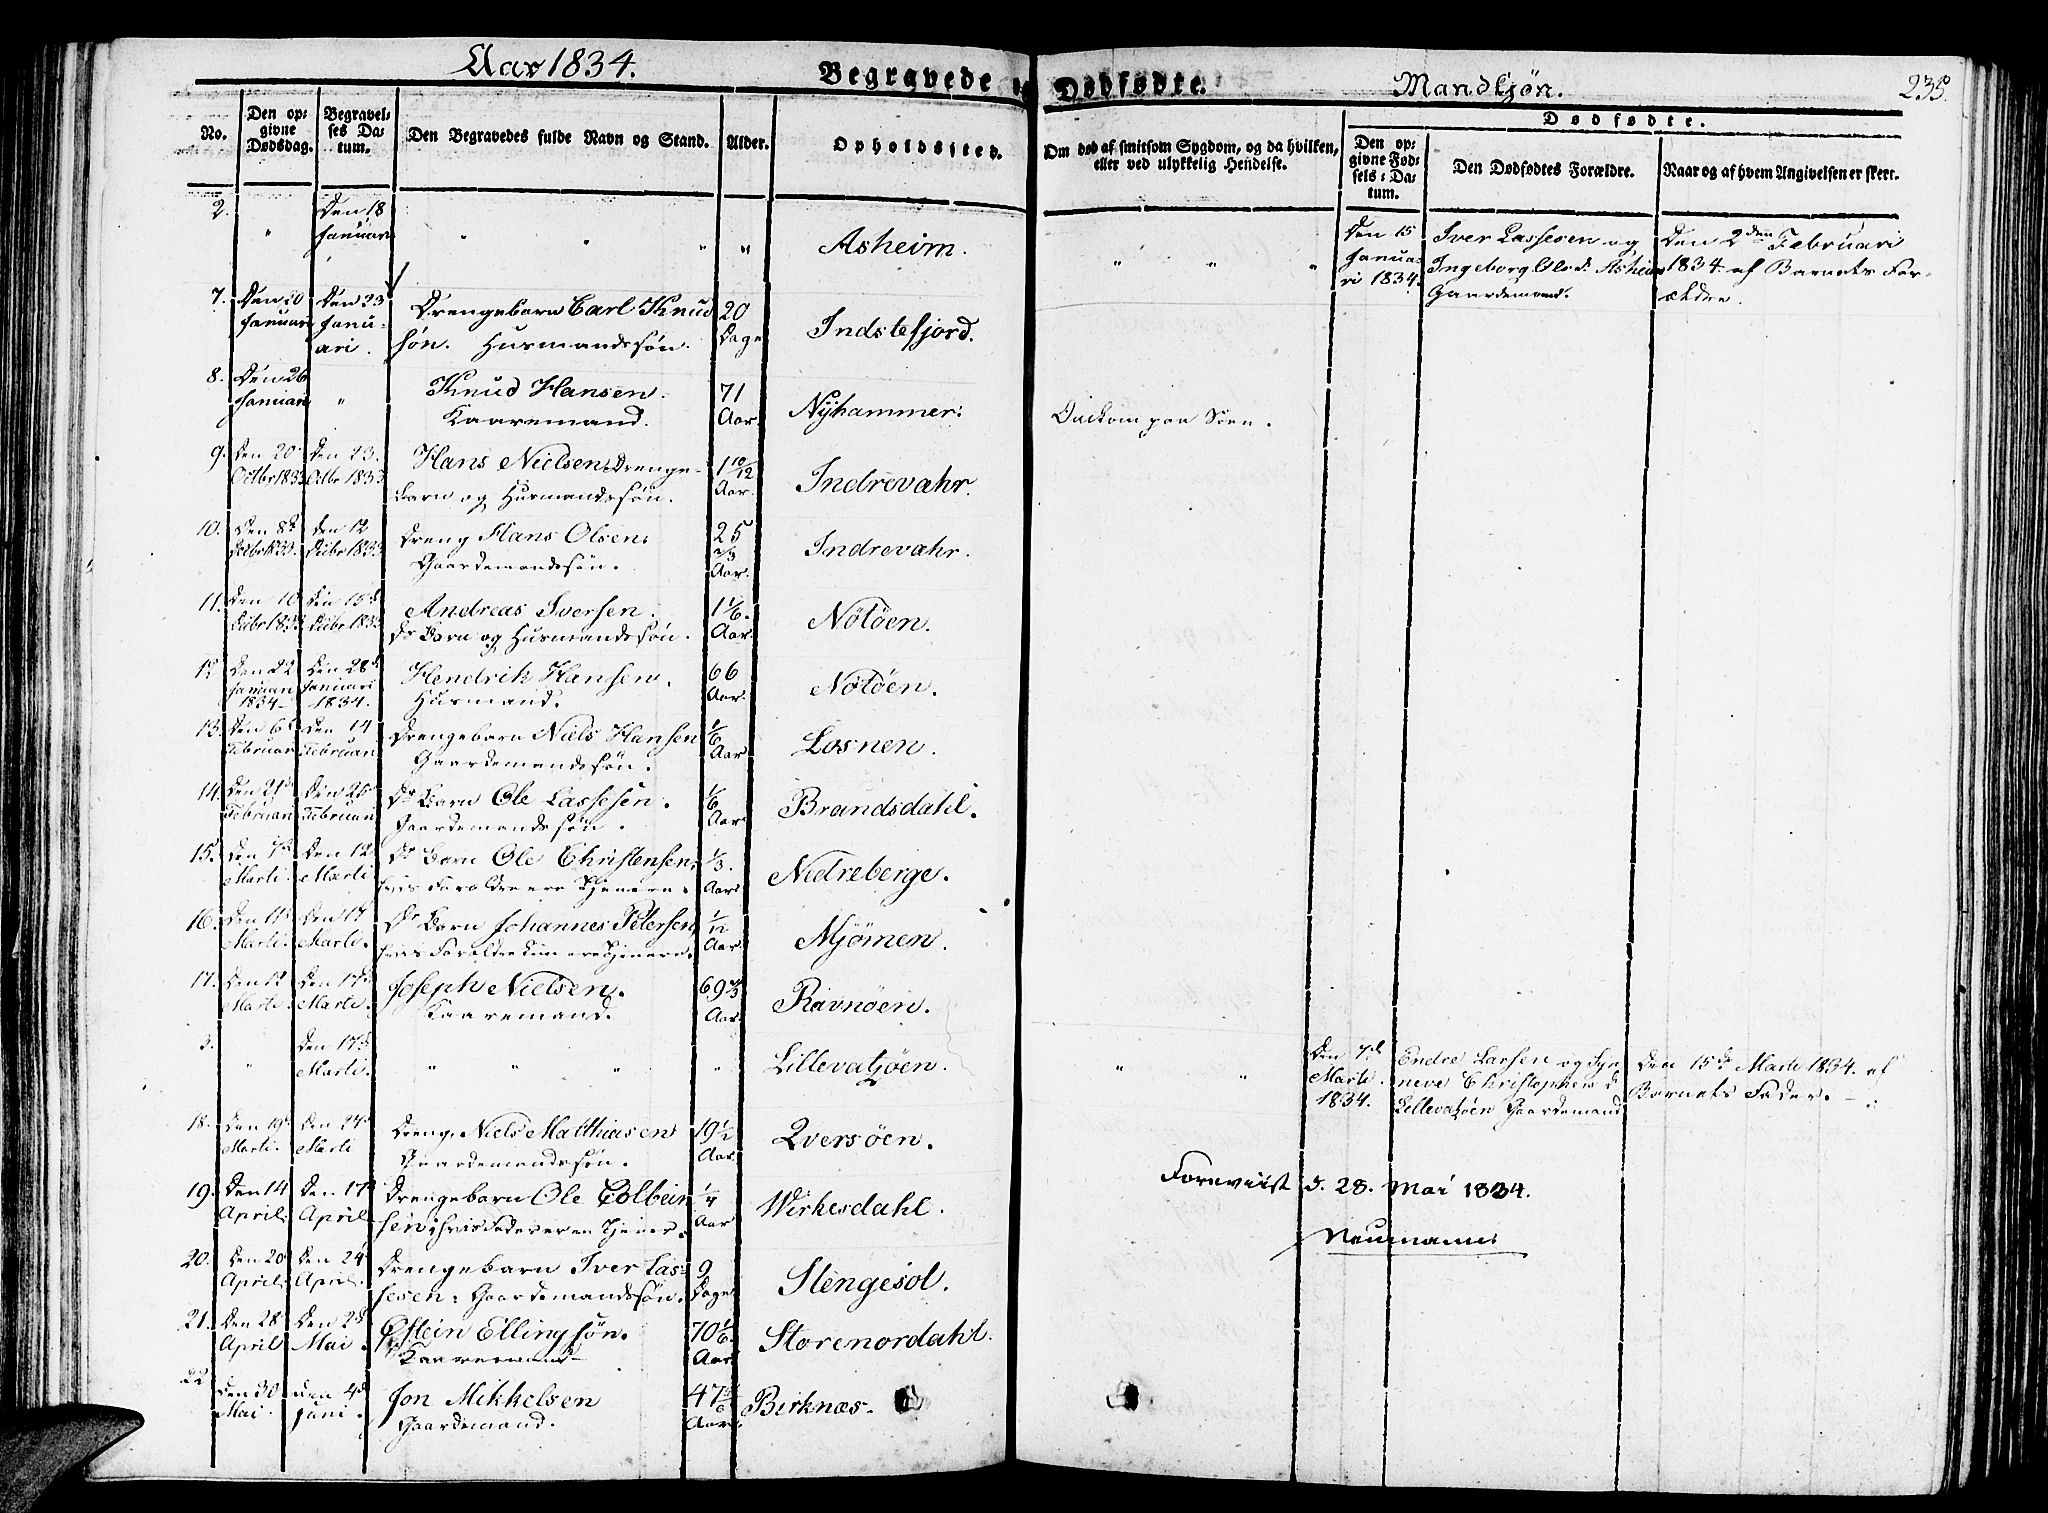 Aar 1834.
Begravede
Dødfødte.
Mandkjøn.
235.
No.
Den op-
givne
Dødsdag.
Begravel-
ses Da-
tum.
Den Begravedes fulde Navn og Stand.
Alder.
Opholdssted.
Om død af smitsom Sygdom, og da hvilken,
eller ved ulykkelig Hendelse.
Dødfødte.
Den op-
givne Fød-
sels-Da-
tum.
Den Dødfødtes Forældre.
Naar og af hvem Angivelsen er skeet.
2.
"
Den 18
Januari
" " "
"
Asheim.
" " "
Den 15
Janua-
ri 1834.
Iver Lassesen og
Ingeborg Olsd. Asheim
Gaardemand.
Den 2den Februari
1834 af Barnets For-
ældre.
7.
Den 20
Januar
Den 23
Janu-
ari.
Drengebarn Carl Knud
søn. Husmandssøn.
20
Dage
Indstefjord.
8.
Den 26
Januar
"
Knud Hansen.
Kaaremand.
71
Aar.
Nyhammer.
Omkom paa Søen.
9.
Den 20
Octbr 1833
Den 23.
Octbr 1833
Hans Nielsen Drenge-
barn og Husmandssøn.
1 10/12
Aar.
Indrevahr.
10.
Den 8d
Decbr 1833.
Den 12
Decbr 1833
Dreng Hans Olsen
Gaardemandssøn.
25
2/3
Aar.
Indrevahr.
11.
Den 10
Decbr 1833
Den 15d
Decbr 1833
Andreas Iversen.
Dr Barn og Husmandssøn.
1 1/6.
Aar.
Nötöen.
12
Den 22
Januari
1834
Den 28d
Januari
1834.
Hendrik Hansen.
Husmand.
66
Aar.
Nötöen.
13.
Den 6d
Februar
Den 14
Februari
Drengebarn Niels Hansen
Gaardemandssøn.
1/6
Aar
Losnen.
14.
Den 21d
Februari
Den 25d
Februari
Dr Barn Ole Lassesen.
Gaardemandssøn.
1/6
Aar
Brandsdahl.
15.
Den 7d
Marti.
Den 12
Marti
Dr Barn Ole Christensen,
hvis Forældre ere Tjenere.
1/3.
Aar.
Nedreberge.
16.
Den 11d
Marti.
Den 17
Marti.
Dr Barn Johannes Petersen
hvis Forældre kun ere Tjenere.
1/12
Aar.
Mjömen.
17.
Den 12
Marti.
Den 17d
Marti.
Joseph Nielsen.
Kaaremand.
69 2/3
Aar.
Ravnöen.
3.
"
Den 17d
Marti.
" " "
"
Lillevatjöen.
" "
Den 7d
Marti.
1834.
Endre Larsen og Syn-
neve Christophersd
Lillevatjöen Gaardemand
Den 15de Marti 1834. af
Barnets Fader.
18.
Den 19d
Marti.
Den 24d
Marti
Dreng Niels Matthiasen
Gaardemandssøn.
19 1/2
Aar.
Qversöen.
19.
Den 14
April.
Den 17d
April.
Drengebarn Ole Colbein
sen; hvis Fader er en Tjener.
1/4
Aar
Wirkesdahl.
Foreviist d. 28. Mai 1834.
Neumann.
20.
Den 20
April.
Den 24d
April.
Drengebarn Iver Las-
sesen; Gaardemandssøn.
9
Dage
Stengesol.
21.
Den 28
April
Den 2d
Mai.
Østein Ellingsøn.
Kaaremand
70 1/6
Aar
Storenordahl.
22
Den 30
Mai.
Den 4d
Juni.
Jon Mikkelsen
Gaardemand.
47 5/6
Aar.
Birknæs.